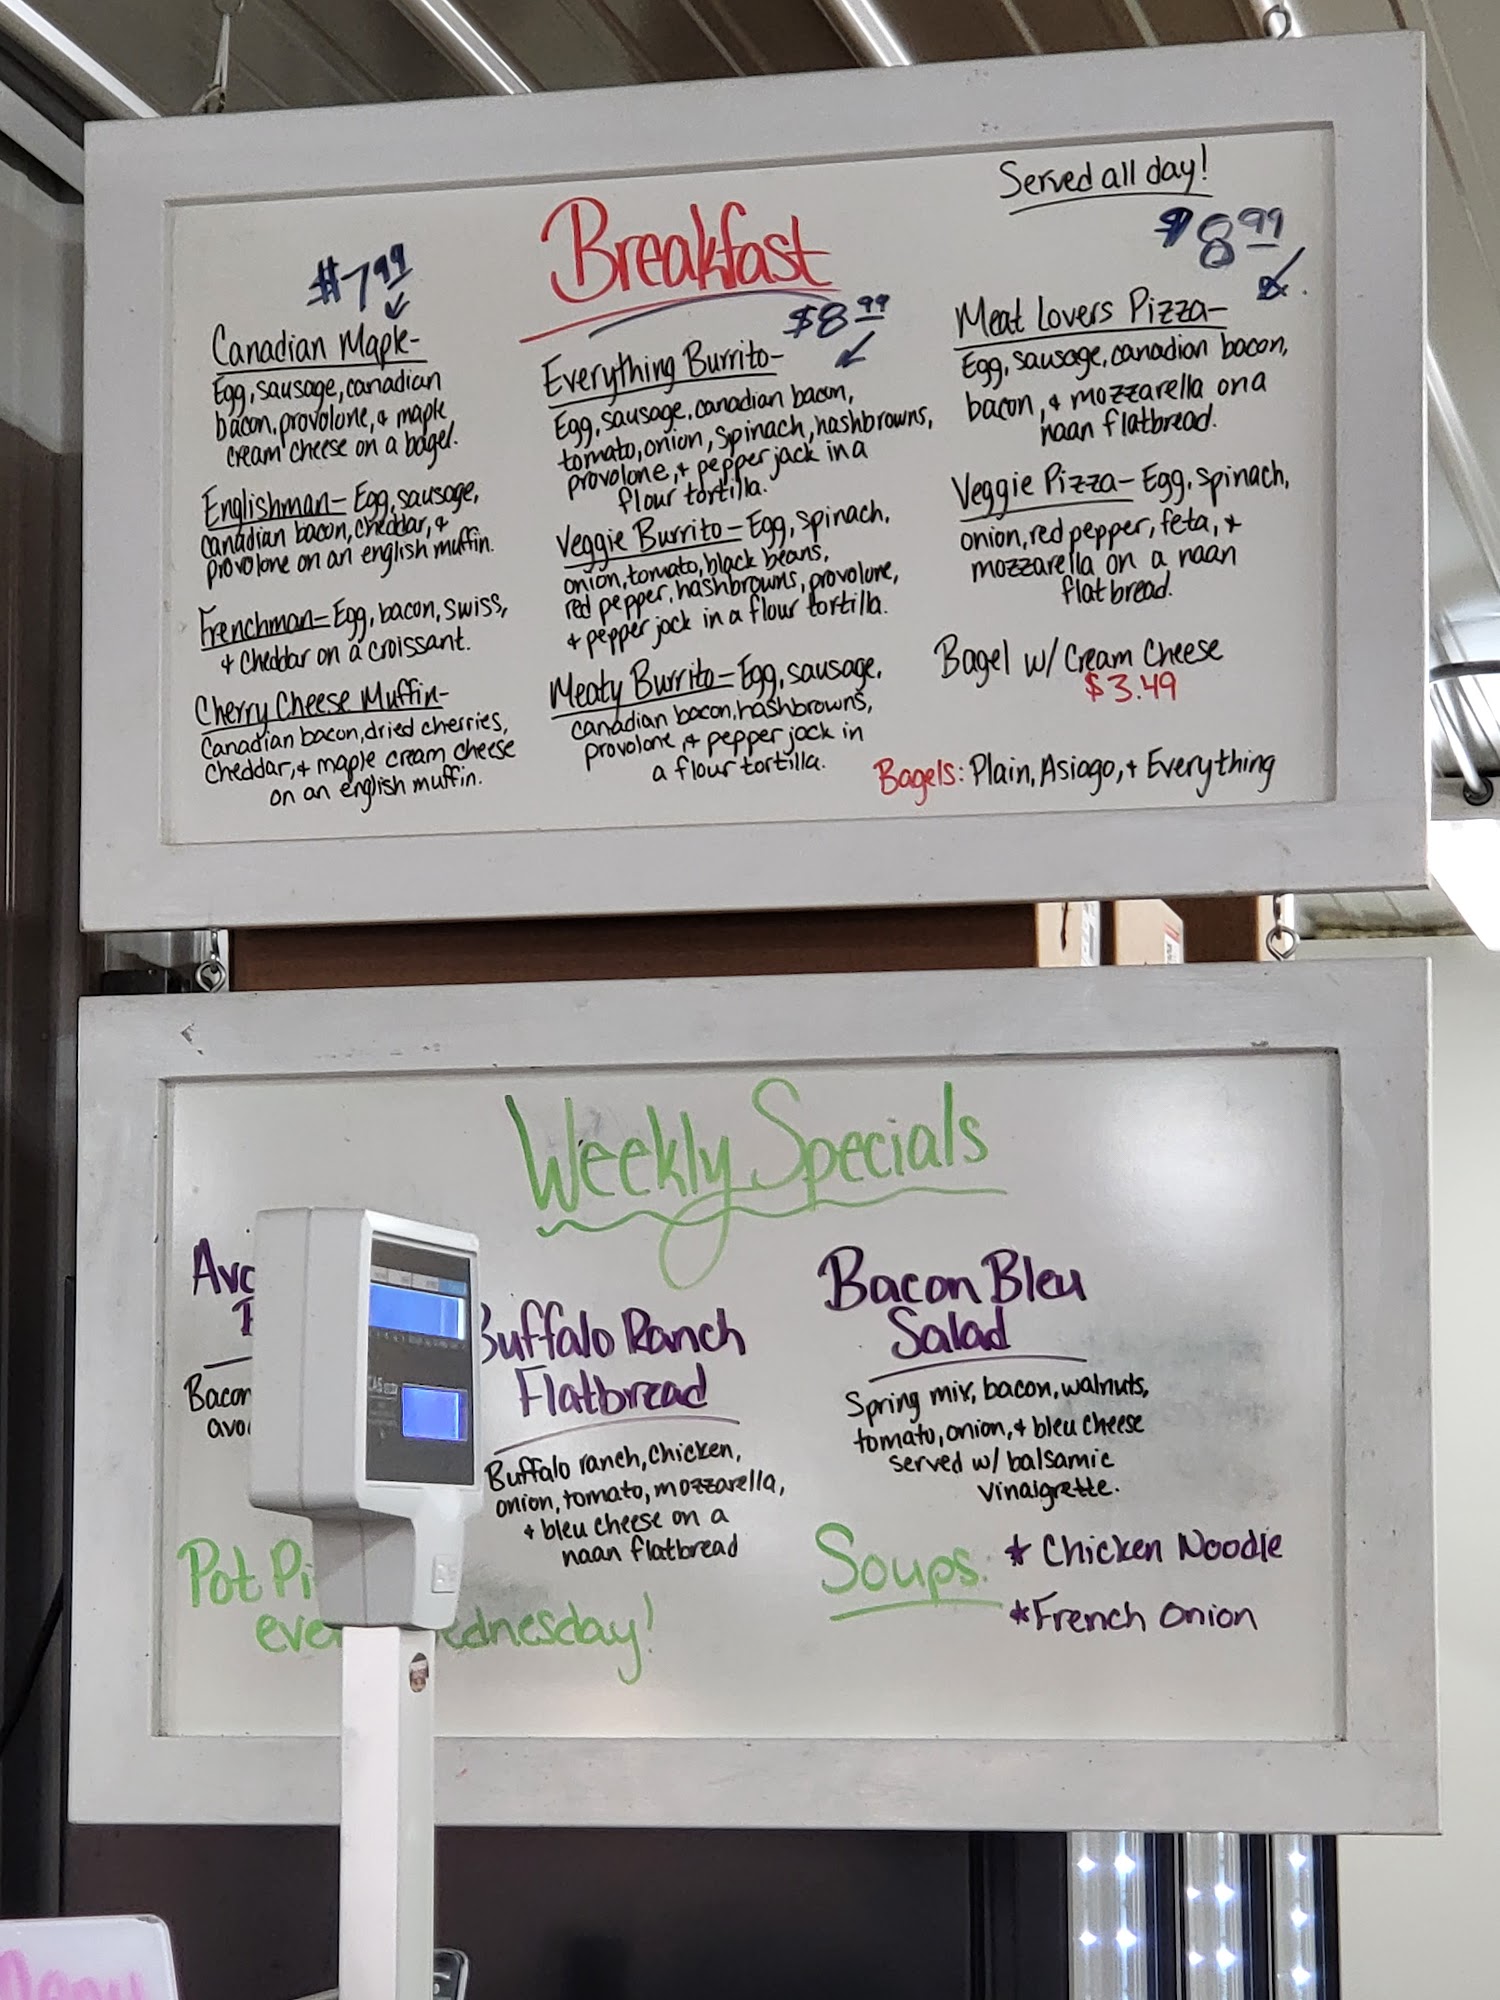 Served all day!
Breakfast
$7.99
Canadian Maple-
Egg, sausage, canadian
bacon, provolone, & maple
cream cheese on a bagel.
Englishman- Egg, sausage,
canadian bacon, cheddar, &
provolone on an english muffin.
Frenchman- Egg, bacon, swiss,
& cheddar on a croissant.
Cherry Cheese Muffin-
Canadian bacon, dried cherries,
cheddar, & maple cream cheese
on an english muffin.
$8.99
Everything Burrito-
Egg, sausage, canadian bacon,
tomato, onion, spinach, hashbrowns,
provolone, & pepper jack in a
flour tortilla.
Veggie Burrito- Egg, spinach,
onion, tomato, black beans,
red pepper, hashbrowns, provolone,
& pepper jack in a flour tortilla.
Meaty Burrito- Egg, sausage,
canadian bacon, hashbrowns,
provolone & pepper jack in
a flour tortilla.
$8.99
Meat Lovers Pizza-
Egg, sausage, canadian bacon,
bacon, & mozzarella on a
naan flatbread.
Veggie Pizza- Egg, spinach,
onion, red pepper, feta, &
mozzarella on a naan
flatbread.
Bagel w/ Cream Cheese
$3.49
Bagels: Plain, Asiago, & Everything
Weekly Specials
Bacon
Buffalo Ranch
Flatbread
Buffalo ranch, chicken,
onion, tomato, mozzarella,
& bleu cheese on a
naan flatbread
Bacon Bleu
Salad
Spring mix, bacon, walnuts,
tomato, onion, & bleu cheese
served w/ balsamic
vinaigrette.
Pot
Soups: * Chicken Noodle
* French Onion
CAS
Menu